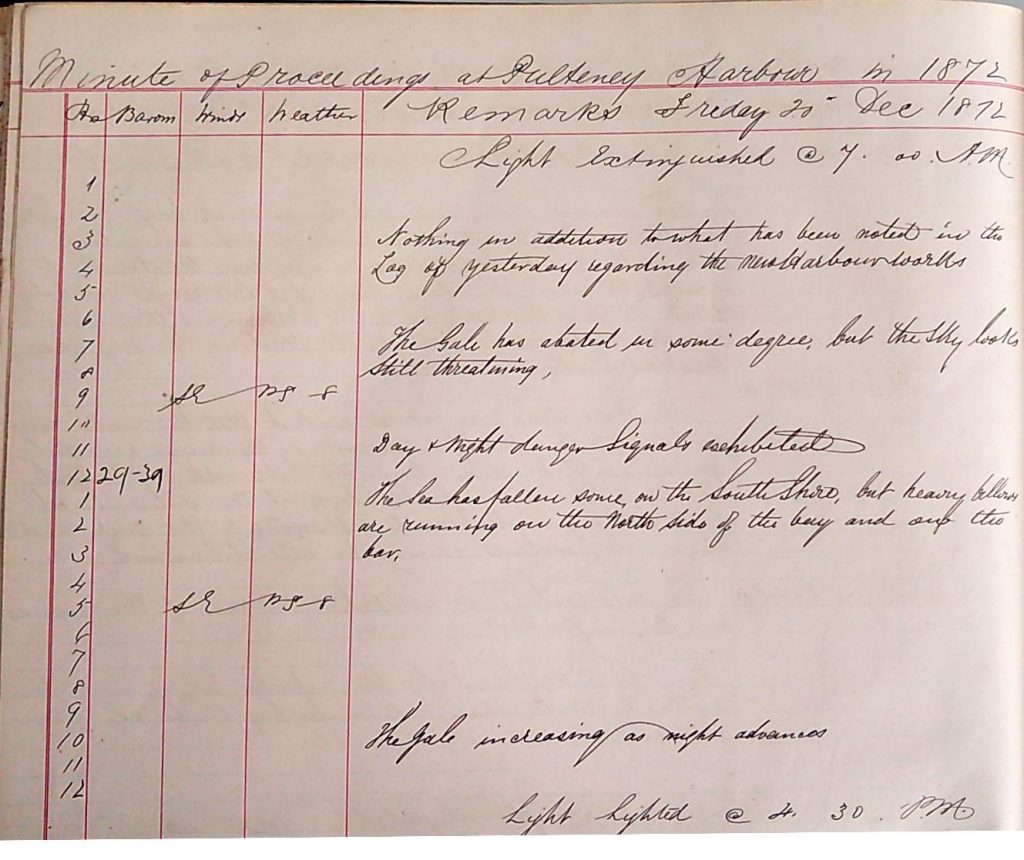 Minute of Proceedings at Pulteney Harbour in 1872
Hrs Barom Winds Weather Remarks Freday 20 Dec 1872
Light Extinguished @ 7. 00. A.M.
1
2
3 Nothing in addition to what has been noted in the
4 Log of yesterday regarding the new Harbour works
5
6
7 The Gale has abated in some degree, but the Sky looks
8 still threatning,
9 SE 8
10
11 Day & Night danger Signals exhibited
12 29-39
1 The Sea has fallen some, on the South Shore, but heavy billows
2 are running on the North Side of the bay and on the
3 bar,
4
5 SE 8
6
7
8
9
10 The Gale increasing as night advances
11
12
Light Lighted @ 4. 30. P.M.